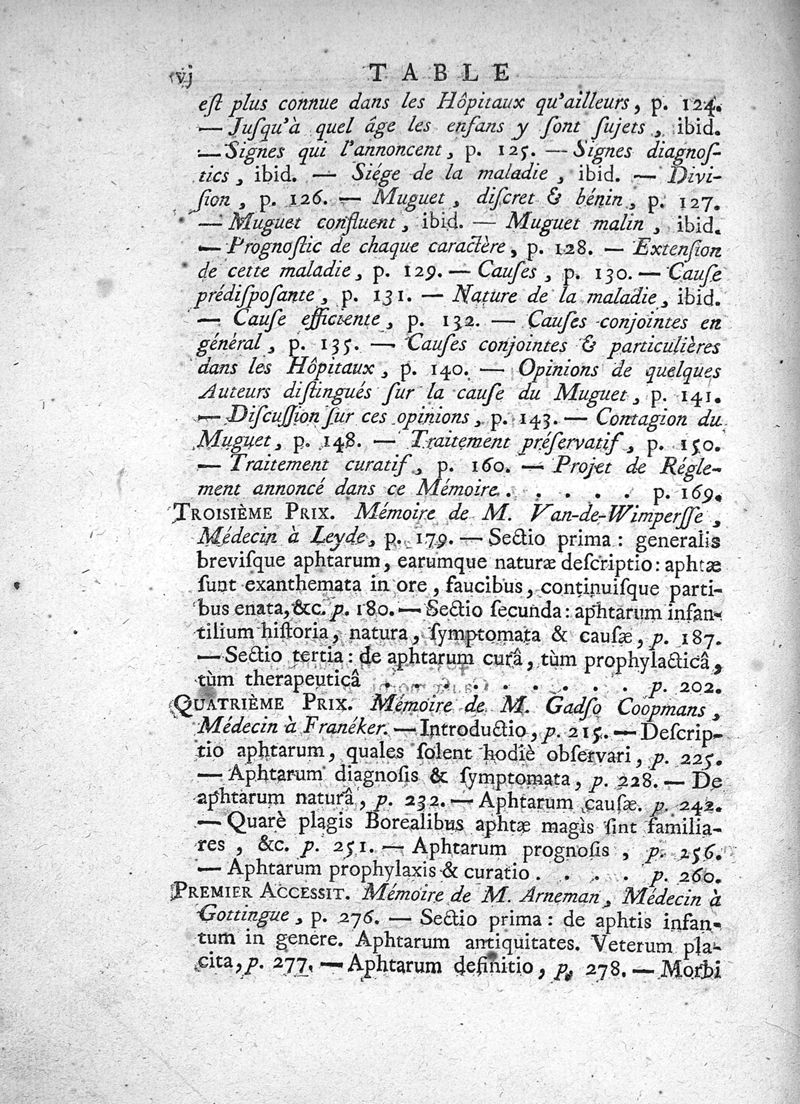 vj
TABLE
eſt plus connue dans les Hôpitaux qu'ailleurs, p. 124.
— Juſqu'à quel âge les enfans y ſont ſujets, ibid.
— Signes qui l'annoncent, p. 125. — Signes diagnoſ-
tics, ibid. — Siége de la maladie, ibid. — Divi-
ſion, p. 126. — Muguet, diſcret & bénin, p. 127.
— Muguet confluent, ibid. — Muguet malin, ibid.
— Prognoſtic de chaque caractère, p. 128. — Extenſion
de cette maladie, p. 129. — Cauſes, p. 130. — Cauſe
prédiſpoſante, p. 131. — Nature de la maladie, ibid.
— Cauſe efficiente, p. 132. — Cauſes conjointes en
général, p. 135. — Cauſes conjointes & particulières
dans les Hôpitaux, p. 140. — Opinions de quelques
Auteurs diſtingués ſur la cauſe du Muguet, p. 141.
— Diſcuſſion ſur ces opinions, p. 143. — Contagion du
Muguet, p. 148. — Traitement préſervatif, p. 150.
— Traitement curatif, p. 160. — Projet de Régle-
ment annoncé dans ce Mémoire. . . . . . p. 169.
TROISIÈME PRIX. Mémoire de M. Van-de-Wimperſſe,
Médecin à Leyde, p. 179. — Sectio prima : generalis
breviſque aphtarum, earumque naturæ deſcriptio : aphtæ
ſunt exanthemata in ore, faucibus, continuiſque parti-
bus enata, &c. p. 180. — Sectio ſecunda : aphtarum infan-
tilium hiſtoria, natura, ſymptomata & cauſæ, p. 187.
— Sectio tertia : de aphtarum curâ, tùm prophylacticâ,
tùm therapeuticâ . . . . . . . . . . p. 202.
QUATRIÈME PRIX. Mémoire de M. Gadſo Coopmans,
Médecin à Franéker. — Introductio, p. 215. — Deſcrip-
tio aphtarum, quales ſolent hodiè obſervari, p. 225.
— Aphtarum diagnoſis & ſymptomata, p. 228. — De
aphtarum naturâ, p. 232. — Aphtarum cauſæ. p. 242.
— Quarè plagis Borealibus aphtæ magis ſint familia-
res, &c. p. 251. — Aphtarum prognoſis, p. 256.
— Aphtarum prophylaxis & curatio. . . . . p. 260.
PREMIER ACCESSIT. Mémoire de M. Arneman, Médecin à
Gottingue, p. 276. — Sectio prima : de aphtis infan-
tum in genere. Aphtarum antiquitates. Veterum pla-
cita, p. 277. — Aphtarum definitio, p. 278. — Morbi